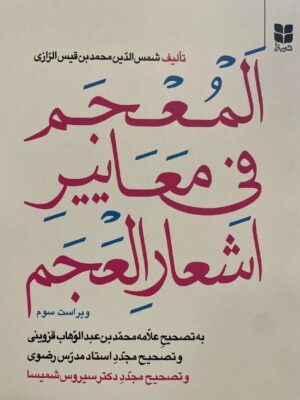 تألیف شمس‌الدّین محمد بن قیس الرّازی
اَلْمُعْجَم
فی مَعَاییرِ
اَشعارِ العَجَم
ویراست سوم
به تصحیحِ علّامه محمّد بن عبدالوهّاب قزوینی
و تصحیحِ مجدّدِ استاد مدرّس رضوی
و تصحیحِ مجدّدِ دکتر سیروس شمیسا